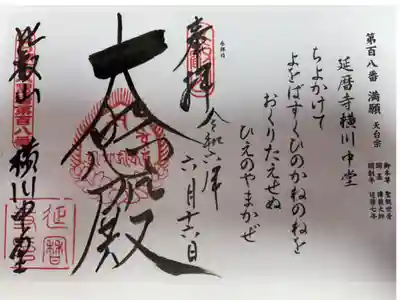 第百八番 満願 天台宗
延暦寺横川中堂
ちよかけて
よをばすくひのかねのねを
おくりたえせぬ
ひえのやまかぜ
奉拝
令和六年
六月十六日
大悲殿
比叡山
横川中堂
延暦